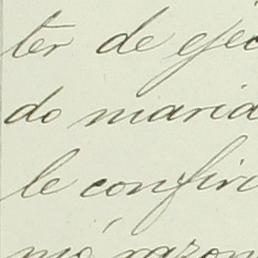 ter de ejec
do marid
le confir
mó, razon